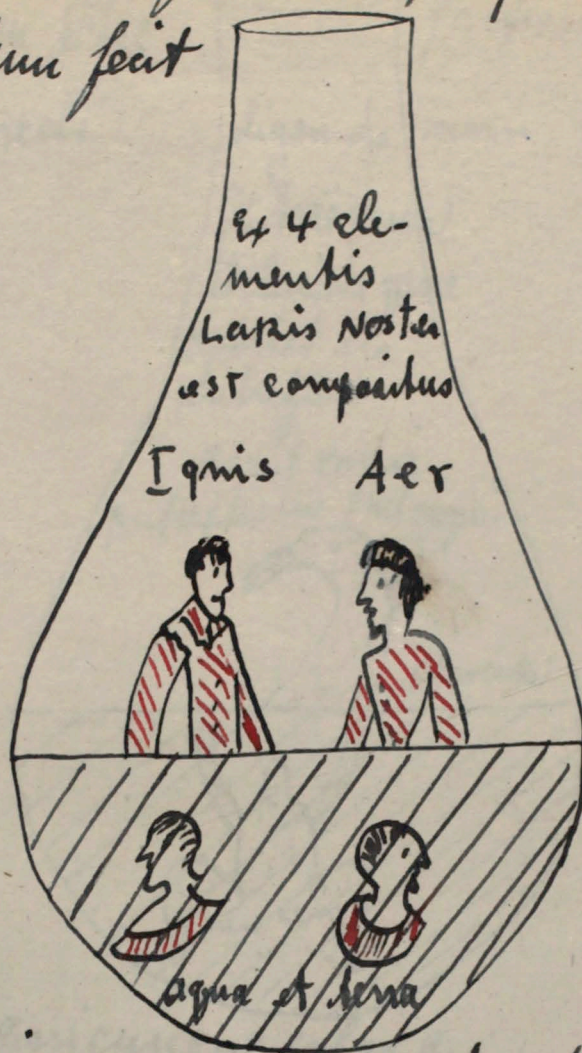 fecit
Ex 4 ele-
mentis
Lapis Noster
est compositus
Ignis Aer
aqua et terra